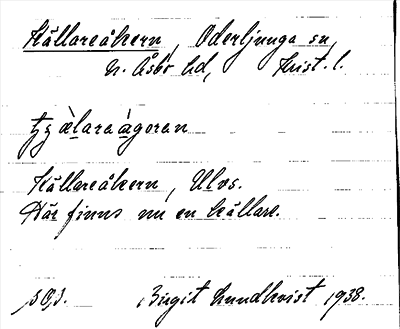 Källareåkern, Oderljunga sn,
N. Åsbo hd, Krist. l.
Källareåkern, Ulvs.
Där finns nu en källare.
Birgit Lundkvist 1938.